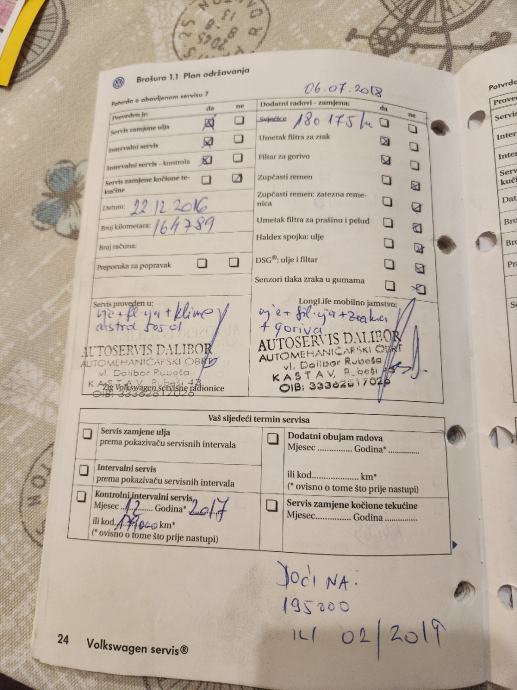 Brošura 1.1 Plan održavanja
Potvrda o obavljenom servisu 7
06.07.2018
Proveden je:
da
ne
Servis zamjene ulja
Intervalni servis
Intervalni servis - kontrola
Servis zamjene kočione te-
kućine
Datum: 22.12.2016
Broj kilometara: 164789
Broj računa:
Preporuka za popravak
Dodatni radovi - zamjena:
da
ne
Svjećice 180175 km
Umetak filtra za zrak
Filtar za gorivo
Zupčasti remen
Zupčasti remen: zatezna reme-
nica
Umetak filtra za prašinu i pelud
Haldex spojka: ulje
DSG®: ulje i filtar
Senzori tlaka zraka u gumama
Servis proveden u:
AUTOSERVIS DALIBOR
AUTOMEHANIČARSKI OBRT
vl. Dalibor Rubeša
Žig Volkswagen servisne radionice
LongLife mobilno jamstvo:
+ goriva
AUTOSERVIS DALIBOR
AUTOMEHANIČARSKI OBRT
vl. Dalibor Rubeša
KASTAV, Rubeši
OIB: 33362617026
Vaš sljedeći termin servisa
Servis zamjene ulja
prema pokazivaču servisnih intervala
Intervalni servis
prema pokazivaču servisnih intervala
Kontrolni intervalni servis
Mjesec 12 Godina* 2017
ili kod 179000 km*
(* ovisno o tome što prije nastupi)
Dodatni obujam radova
Mjesec.............. Godina* ..............
ili kod.................. km*
(* ovisno o tome što prije nastupi)
Servis zamjene kočione tekućine
Mjesec.............. Godina ..............
Doći NA:
195200
ILI 02/2019
24 Volkswagen servis®